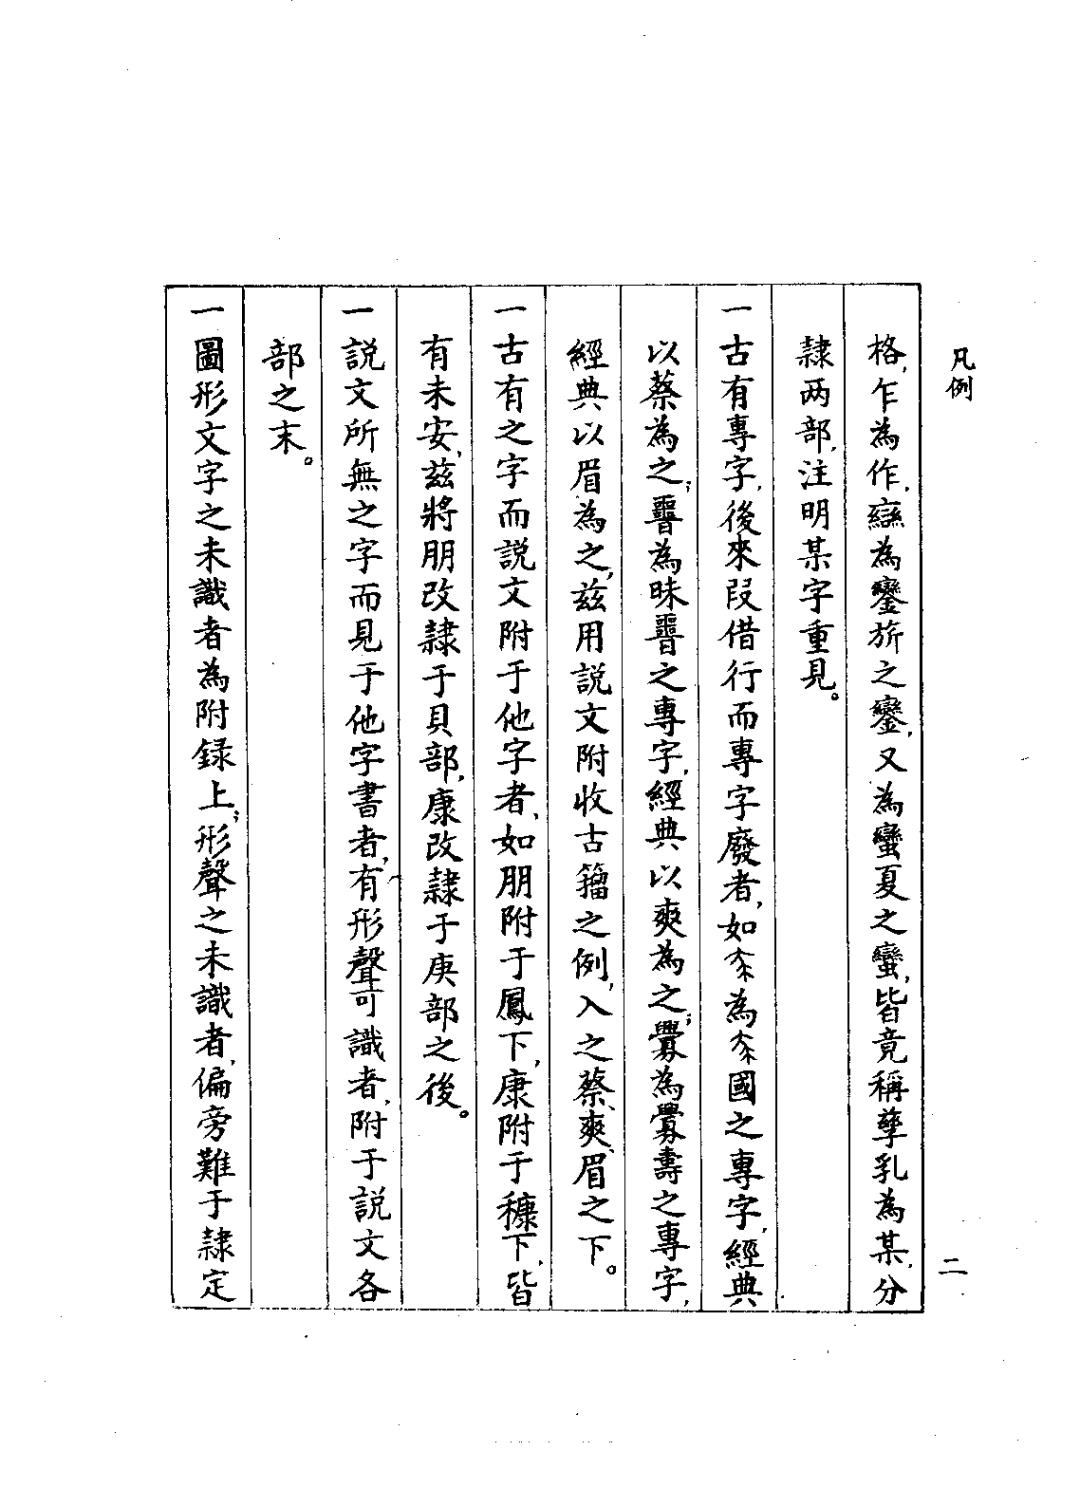 凡例
二
格,乍為作,䜌為鑾旂之鑾,又為蠻夏之蠻,皆竟稱孳乳為某,分
隸两部,注明某字重見。
一古有專字,後來叚借行而專字廢者,如為國之專字,經典
以蔡為之;為昧之專字,經典以爽為之;為壽之專字,
經典以眉為之,茲用説文附收古籀之例,入之蔡、爽、眉之下。
一古有之字而説文附于他字者,如朋附于鳳下,康附于穅下,皆
有未安,茲將朋改隸于貝部,康改隸于庚部之後。
一説文所無之字而見于他字書者,有形聲可識者,附于説文各
部之末。
一圖形文字之未識者為附録上;形聲之未識者,偏旁難于隸定